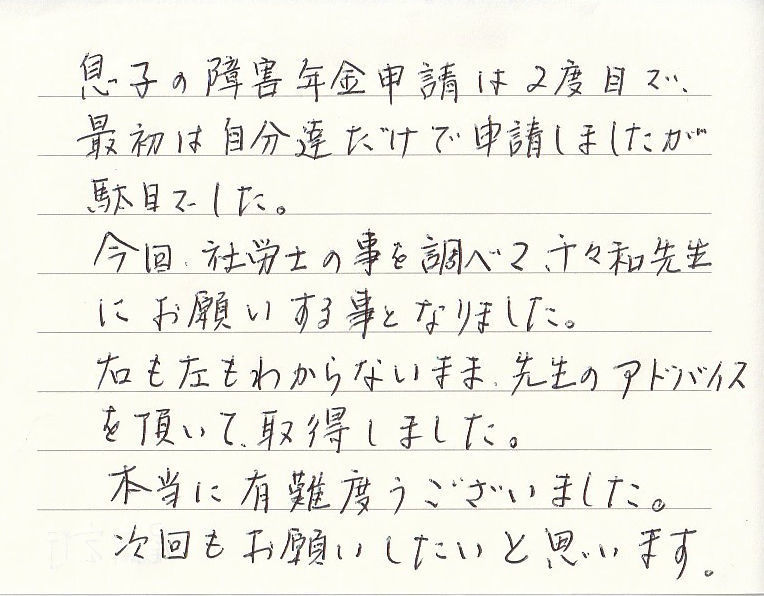 息子の障害年金申請は2度目で、
最初は自分達だけで申請しましたが
駄目でした。
今回、社労士の事を調べて、千々和先生
にお願いする事となりました。
右も左もわからないまま、先生のアドバイス
を頂いて、取得しました。
本当に有難度うございました。
次回もお願いしたいと思います。